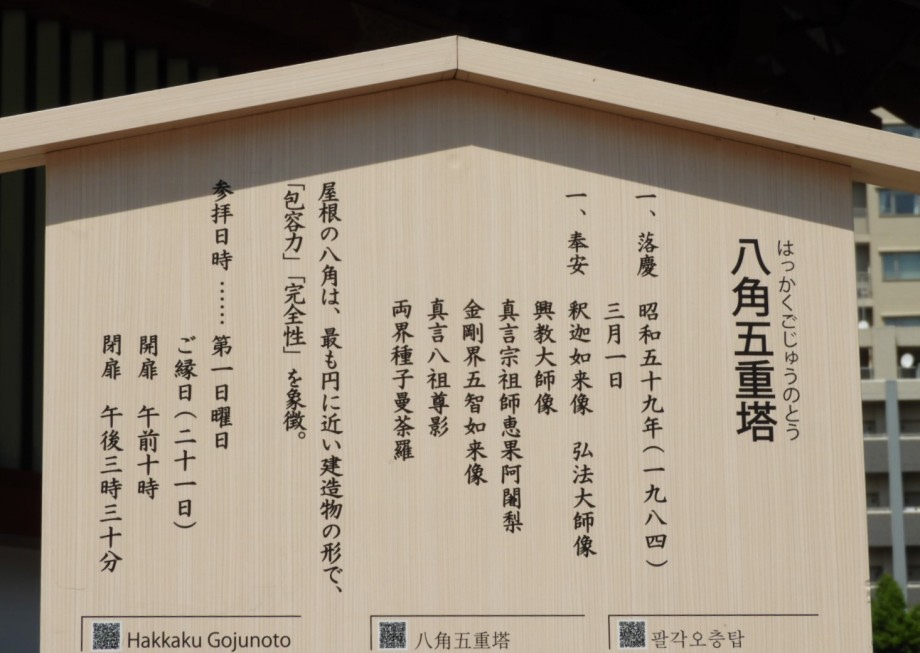 はっかくごじゅうのとう
八角五重塔
一、落慶 昭和五十九年(一九八四)
三月一日
一、奉安 釈迦如来像 弘法大師像
興教大師像
真言宗祖師恵果阿闍梨
金剛界五智如来像
真言八祖尊影
両界種子曼荼羅
屋根の八角は、最も円に近い建造物の形で、
「包容力」「完全性」を象徴。
参拝日時……第一日曜日
ご縁日(二十一日)
開扉 午前十時
閉扉 午後三時三十分
Hakkaku Gojunoto
八角五重塔
팔각오층탑